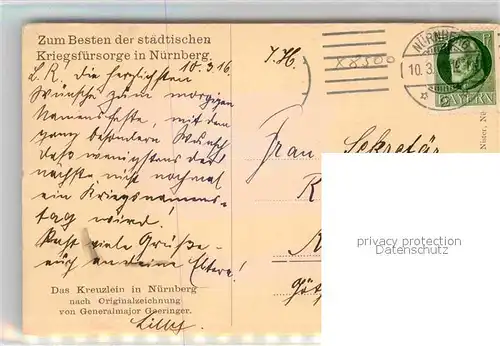 Zum Besten der städtischen
Kriegsfürsorge in Nürnberg.
10.3.16
L. R. Die herzlichsten
Wünsche zum morgigen
Namensfeste, mit dem
ganz besondern Wunsch
daß wenigstens der
nächste nicht nochmal
ein Kriegsnamens-
tag wird!
viele Grüße
auch an deine Eltern!
Das Kreuzlein in Nürnberg
nach Originalzeichnung
von Generalmajor Geeringer.
Lilly
I. H.
88500
NÜRNBERG
10.3.
BAYERN
Frau Sekretär
privacy protection
Datenschutz